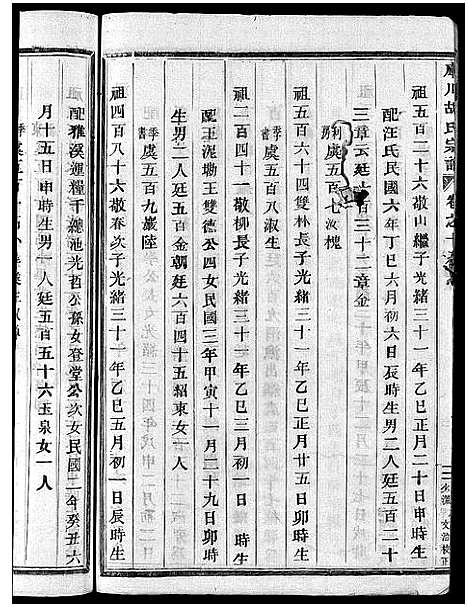 祖五百二十六敬山繼子光緒三十一年乙巳正月二十日申時生
配汪氏民國六年丁巳六月初六日辰時生男二人廷五百二十
三章云廷六百三十二章金
虞五百七汝槐
祖五百六十四雙林長子光緒三十一年乙巳正月廿五日卯時生
季書虞五百八淑生
祖二百四十一敬柳長子光緒三十一年乙巳三月初一日 時生
配王泥塘王雙德公四女民國三年甲寅十一月二十九日卯時
生男二人廷五百金朝廷六百四十五紹東女一人
季書虞五百九巖陸
祖四百八十六敬春次子光緒三十一年乙巳五月初一日辰時生
配雅溪連糧千總池光哲公孫女登堂公次女民國二年癸丑六
月十五日申時生男一人廷五百五十六玉泉女一人